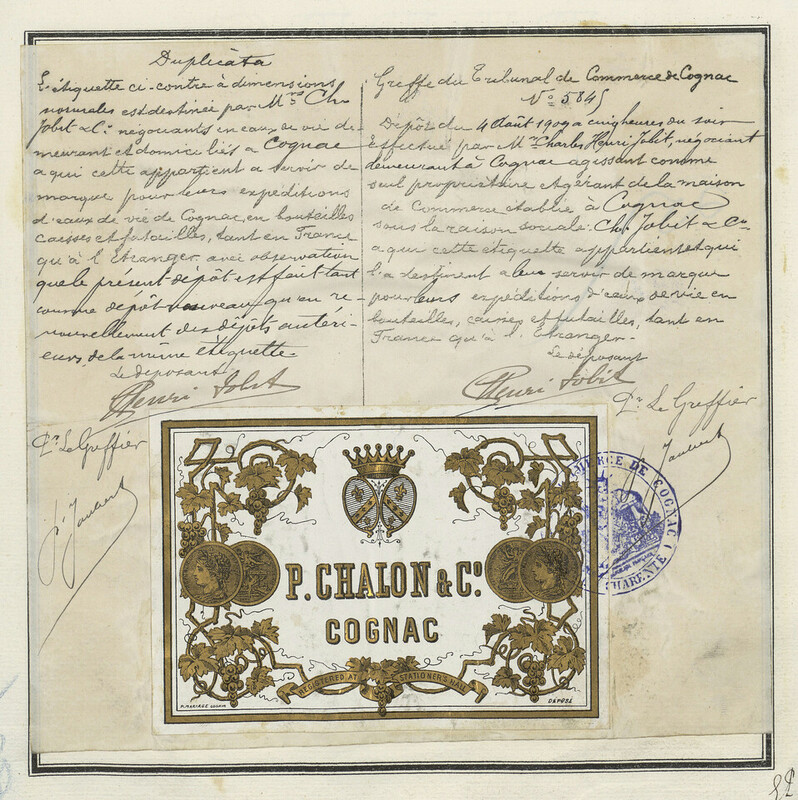 Duplicata
L'étiquette ci-contre à dimensions
normales est destinée par Mrs Ch.
Jobit & Cie négociants en eaux de vie de-
meurant et domiciliés à Cognac
a qui cette appartient a servir de
marque pour leurs expéditions
d'eaux de vie de Cognac, en bouteilles
caisses et futailles, tant en France
qu'à l'Etranger avec observation
que le présent dépôt est fait tant
comme dépôt nouveau qu'en re-
nouvellement des dépôts antéri-
eurs, de la même étiquette.
Le déposant
Henri Jobit
Pr. Le Greffier
Jaubert
Greffe du Tribunal de Commerce de Cognac
No 5845
Dépôt du 4 Août 1909 a cinq heures du soir
Effectué par Mr Charles Henri Jobit, négociant
demeurant à Cognac agissant comme
seul propriétaire et gérant de la maison
de Commerce établie à Cognac
sous la raison sociale: Ch. Jobit & Cie
a qui cette étiquette appartient et qui
l'a destinent a leur servir de marque
pour leurs expéditions d'eaux de vie en
bouteilles, caisses et futailles, tant en
France qu'à l'Etranger.
Le déposant
Henri Jobit
Pr. Le Greffier
Jaubert
P. CHALON & Co.
COGNAC
REGISTERED AT STATIONER'S HALL
DEPOSÉ
MERCE DE COGNAC
CHARENTE